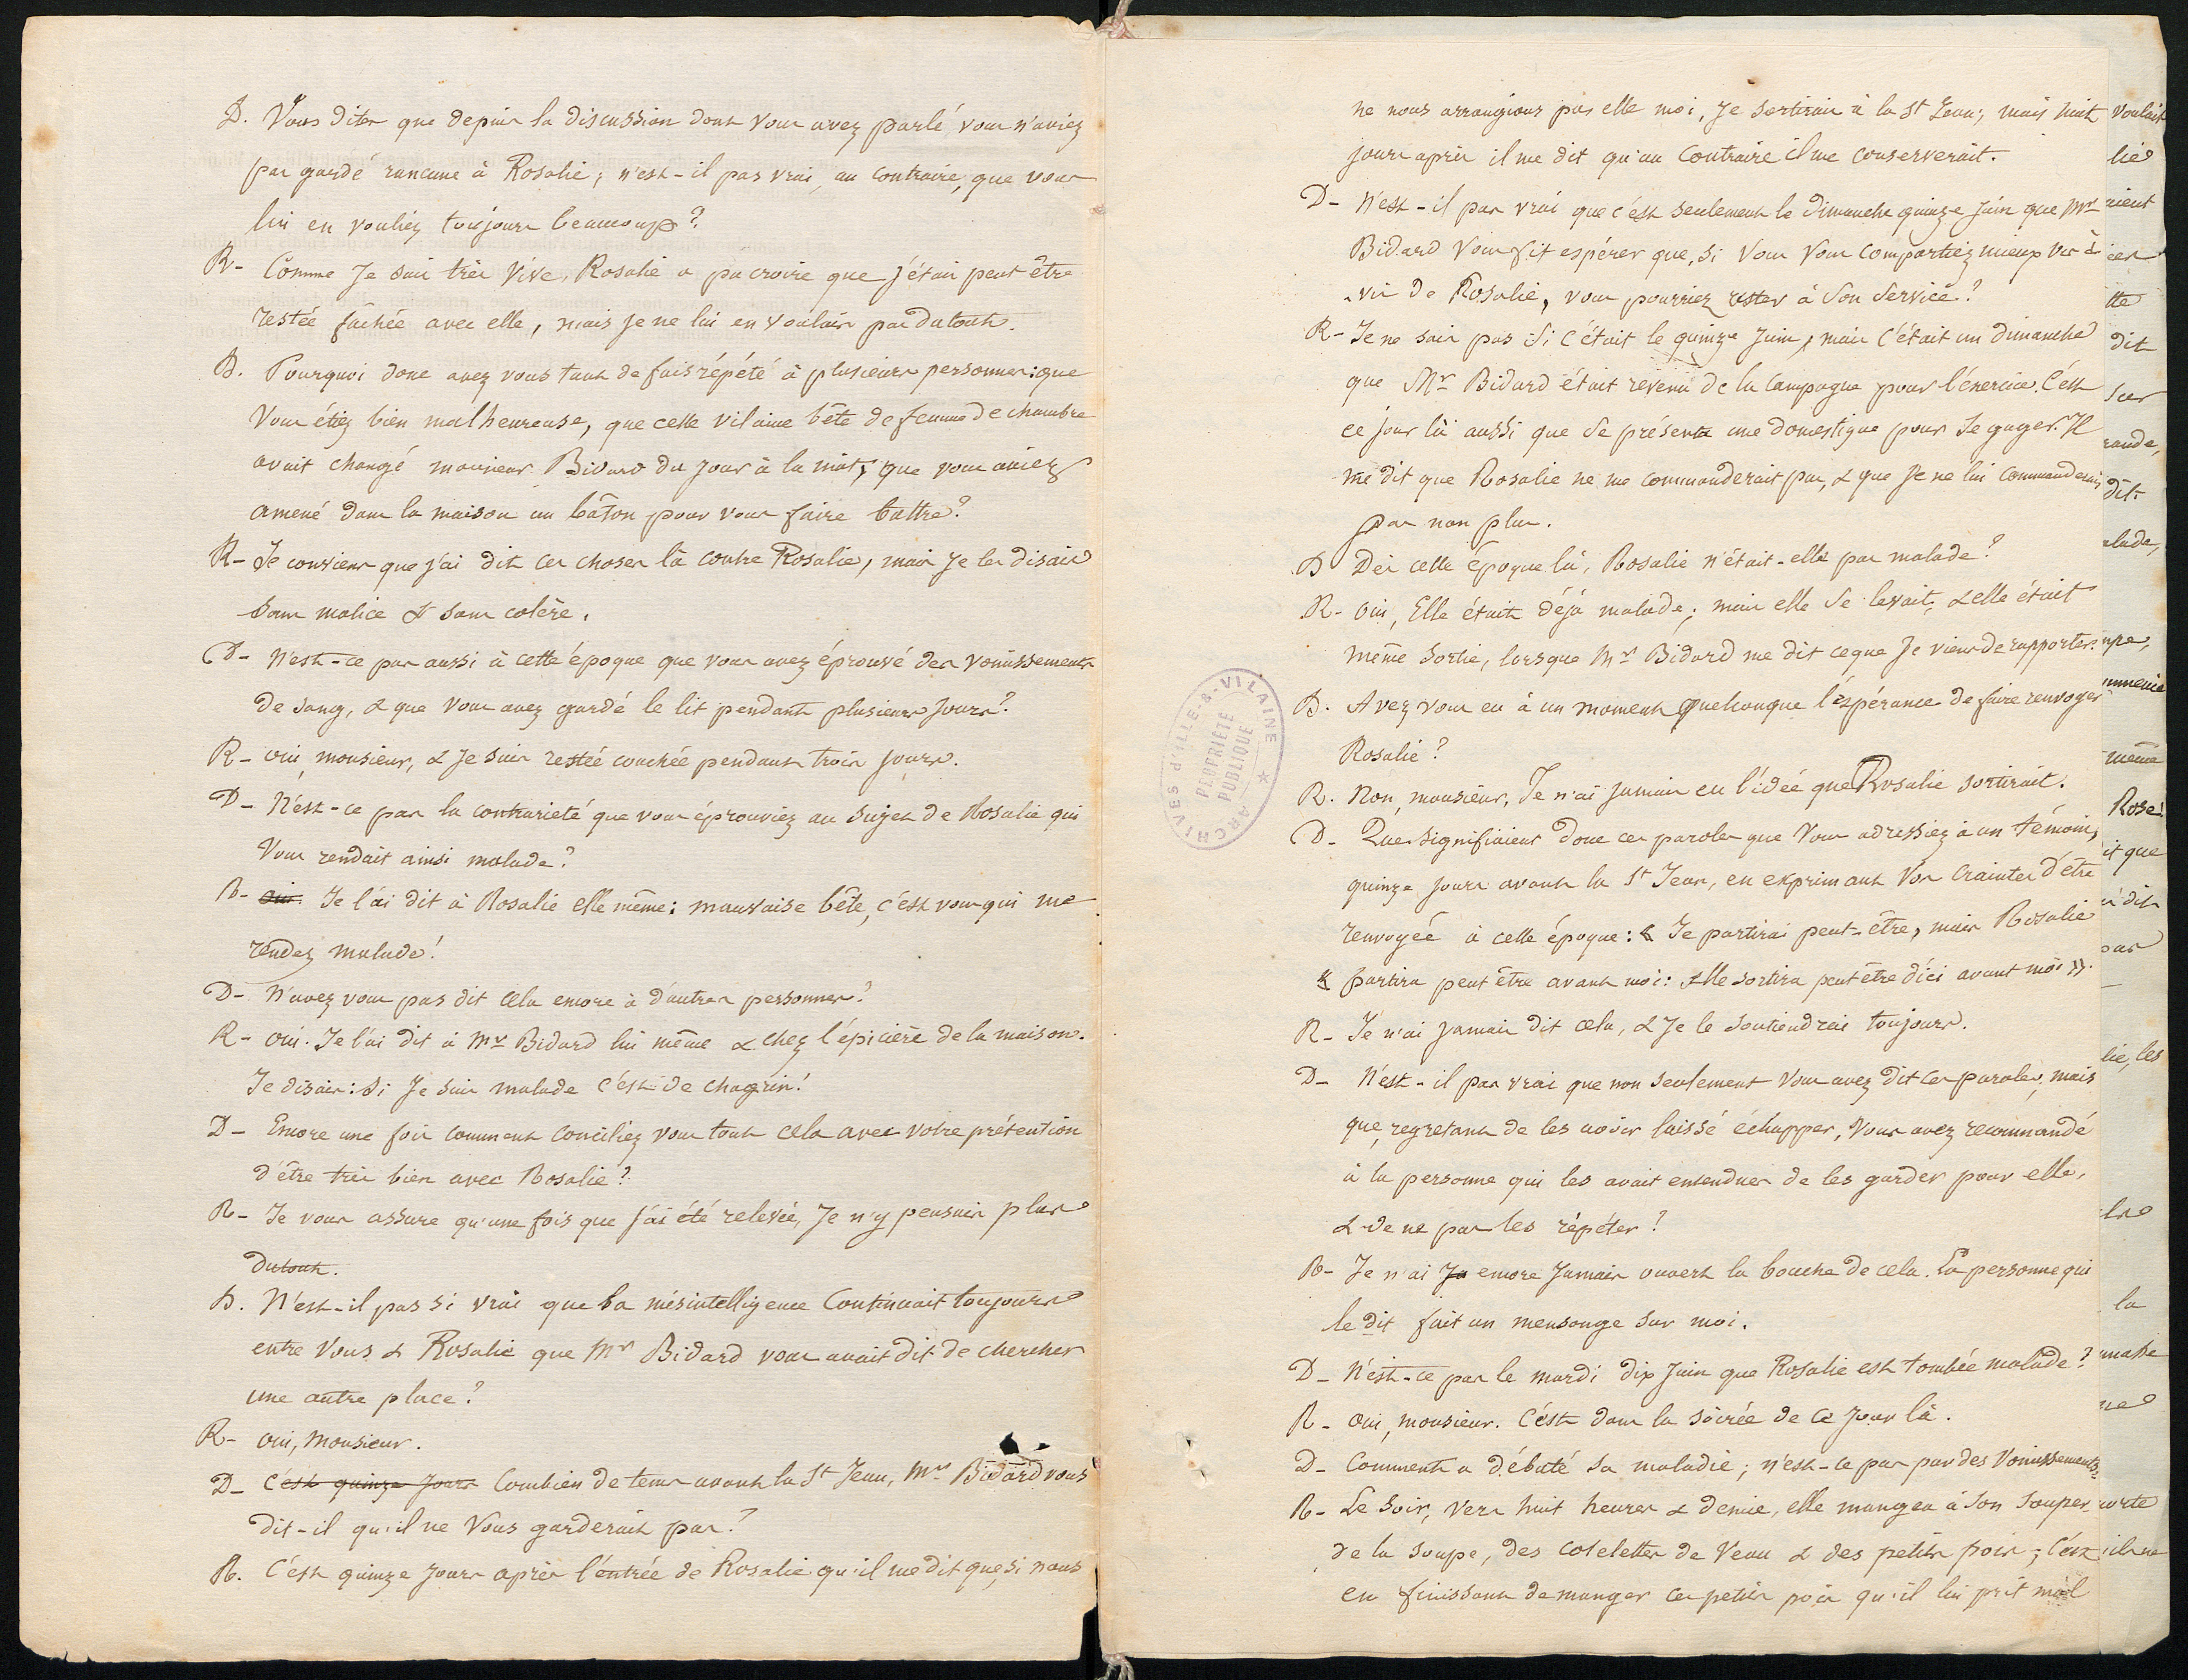 D. Vous dites que depuis la discussion dont vous avez parlé vous n'aviez
pas gardé rancune à Rosalie; n'est-il pas vrai, au contraire, que vous
lui en vouliez toujours beaucoup?
R- Comme Je suis très vive, Rosalie a pu croire que j'étais peut être
restée fachée avec elle, mais je ne lui en voulais pas du tout.
D. Pourquoi donc avez vous tant de fois répété à plusieurs personnes: que
Vous étiez bien malheureuse, que cette vilaine bête de femme de chambre
avait changé monsieur Bidard du jour à la nuit, que vous aviez
amené dans la maison un bâton pour vous faire battre?
R- Je conviens que j'ai dit ces choses là contre Rosalie, mais je les disais
sans malice & sans colère.
D- N'est-ce pas aussi à cette époque que vous avez éprouvé des vomissements
de sang, & que vous avez gardé le lit pendant plusieurs jours?
R- oui, monsieur, & je suis restée couchée pendant trois jours.
D- N'est-ce pas la contrariété que vous éprouviez au sujet de Rosalie qui
Vous rendait ainsi malade?
R- oui. Je l'ai dit à Rosalie elle même: mauvaise bête, c'est vous qui me
rendez malade!
D- N'avez vous pas dit cela encore à d'autres personnes?
R- oui. Je l'ai dit à Mr Bidard lui même & chez l'épicière de la maison.
Je disais: si je suis malade c'est de chagrin!
D- Encore une fois comment conciliez vous tout cela avec votre prétention
d'être très bien avec Rosalie?
R- Je vous assure qu'une fois que j'ai été relevée, Je n'y pensais plus
du tout.
D. N'est-il pas si vrai que la mésintelligence Continuait toujours
entre Vous & Rosalie que Mr Bidard vous avait dit de chercher
une autre place?
R- oui, monsieur.
D- C'est quinze jours Combien de tems avant la St Jean, Mr Bidard vous
dit-il qu'il ne Vous garderait pas?
R. C'est quinze jours après l'entrée de Rosalie qu'il me dit que, si nous
ne nous arrangions pas elle moi, Je sortirais à la St Jean; mais huit
jours après il me dit qu'au Contraire il me conserverait.
D- N'est-il pas vrai que c'est seulement le dimanche quinze juin que Mr
Bidard Vous fit espérer que, si Vous Vous comportiez mieux vis à
-vis de Rosalie, vous pourriez rester à Son Service?
R- Je ne sais pas si c'était le quinze juin, mais c'était un dimanche
que Mr Bidard était revenu de la campagne pour l'exercice. C'est
ce jour là aussi que se présenta une domestique pour se gager. Il
me dit que Rosalie ne me commanderait pas, & que je ne lui commanderais
pas non plus.
D Dès cette époque là, Rosalie n'était-elle pas malade?
R- oui, Elle était déjà malade; mais elle se levait, & elle était
même sortie, lorsque Mr Bidard me dit ce que Je viens de rapporter.
D. Avez vous eu à un moment quelconque l'espérance de faire renvoyer
Rosalie?
R. Non, monsieur, Je n'ai jamais eu l'idée que Rosalie sortirait.
D- Que signifiaient donc ces paroles que Vous adressiez à un témoin,
quinze jours avant la St Jean, en exprimant Vos craintes d'être
renvoyée à cette époque: « Je partirai peut-être, mais Rosalie
« partira peut être avant moi: elle sortira peut être d'ici avant moi ».
R- Je n'ai jamais dit cela, & Je le soutiendrai toujours.
D- N'est-il pas vrai que non seulement vous avez dit ces paroles, mais
que, regretant de les avoir laissé échapper, Vous avez recommandé
à la personne qui les avait entendues de les garder pour elle,
& de ne pas les répéter?
R- Je n'ai Ja encore Jamais ouvert la bouche de cela. La personne qui
le dit fait un mensonge sur moi.
D- N'est-ce pas le mardi dix juin que Rosalie est tombée malade?
R- oui, monsieur. C'est dans la soirée de ce jour là.
D- Comment a débuté sa maladie; n'est-ce pas par des Vomissements?
R- Le soir, vers huit heures & demie, elle mangea à son souper
de la soupe, des coteletter de Veau & des petits pois; c'est
en finissant de manger ces petits pois qu'il lui prit mal
ARCHIVES d'ILLE-&-VILAINE
PROPRIÉTÉ
PUBLIQUE